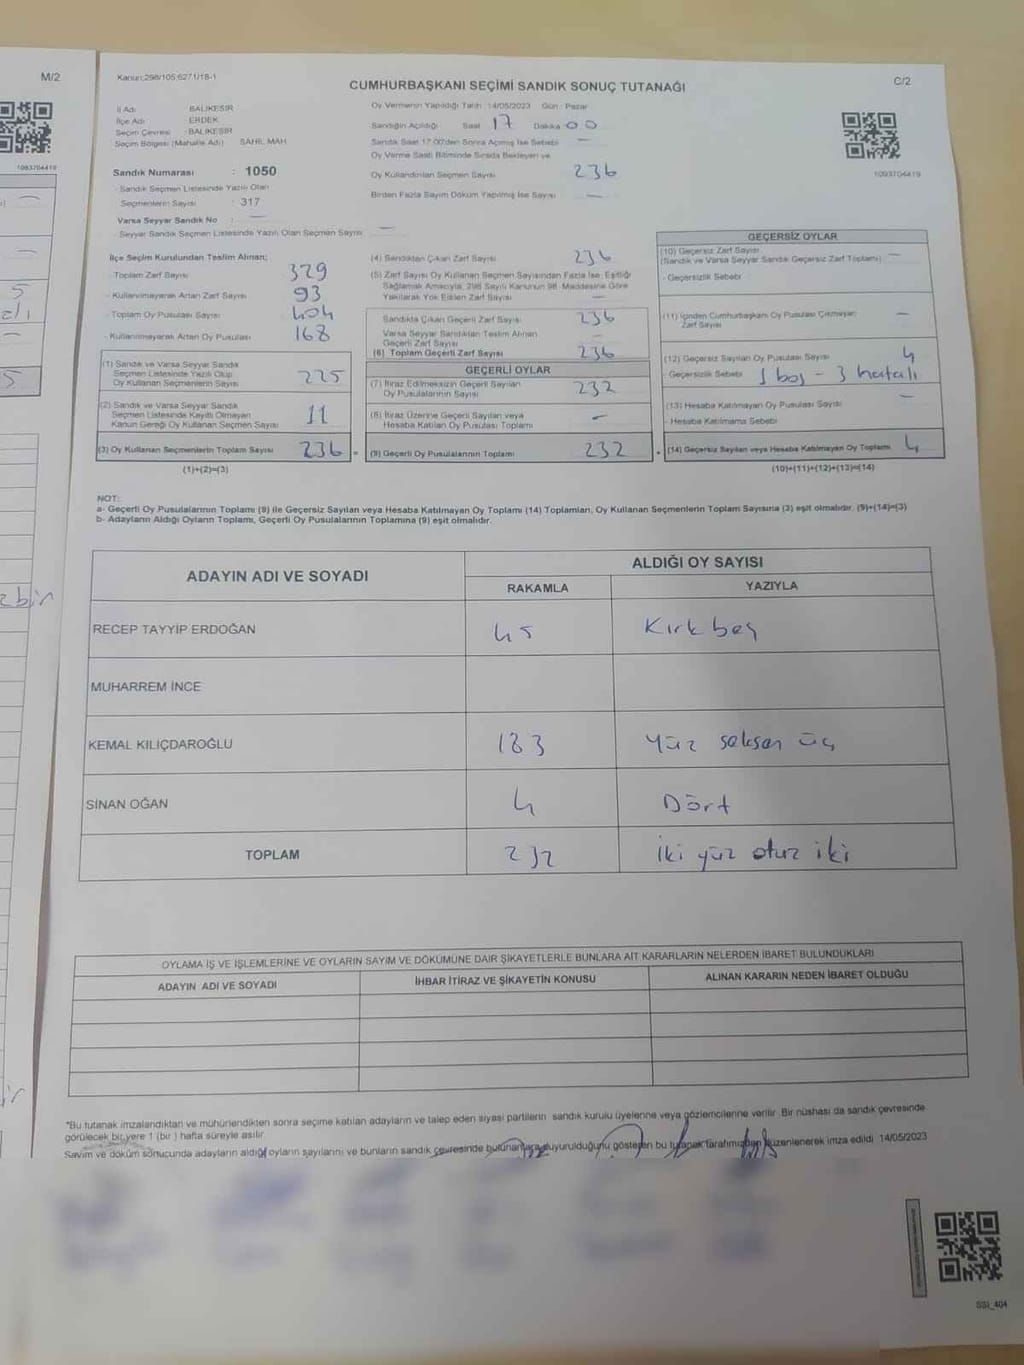 M/2
Kanun:298/105,6271/18-1
CUMHURBAŞKANI SEÇİMİ SANDIK SONUÇ TUTANAĞI
C/2
İl Adı : BALIKESİR
İlçe Adı : ERDEK
Seçim Çevresi : BALIKESİR
Seçim Bölgesi (Mahalle Adı) SAHİL MAH
Oy Vermenin Yapıldığı Tarih :14/05/2023 Gün : Pazar
Sandığın Açıldığı Saat 17 Dakika 00
Sandık Saat 17.00'den Sonra Açılmış İse Sebebi —
Oy Verme Saati Bitiminde Sırada Bekleyen ve
Oy Kullandırılan Seçmen Sayısı 236
Birden Fazla Sayım Döküm Yapılmış İse Sayısı —
1093704419
1093704419
Sandık Numarası : 1050
- Sandık Seçmen Listesinde Yazılı Olan
Seçmenlerin Sayısı : 317
Varsa Seyyar Sandık No : —
- Seyyar Sandık Seçmen Listesinde Yazılı Olan Seçmen Sayısı —
İlçe Seçim Kurulundan Teslim Alınan;
- Toplam Zarf Sayısı 329
- Kullanılmayarak Artan Zarf Sayısı 93
- Toplam Oy Pusulası Sayısı 404
- Kullanılmayarak Artan Oy Pusulası 168
(1) Sandık ve Varsa Seyyar Sandık
Seçmen Listesinde Yazılı Olup
Oy Kullanan Seçmenlerin Sayısı 225
(2) Sandık ve Varsa Seyyar Sandık
Seçmen Listesinde Kayıtlı Olmayan
Kanun Gereği Oy Kullanan Seçmen Sayısı 11
(3) Oy Kullanan Seçmenlerin Toplam Sayısı 236
(1)+(2)=(3)
(4) Sandıktan Çıkan Zarf Sayısı 236
(5) Zarf Sayısı Oy Kullanan Seçmen Sayısından Fazla İse, Eşitliği
Sağlamak Amacıyla, 298 Sayılı Kanunun 98. Maddesine Göre
Yakılarak Yok Edilen Zarf Sayısı —
Sandıkta Çıkan Geçerli Zarf Sayısı 236
Varsa Seyyar Sandıktan Teslim Alınan
Geçerli Zarf Sayısı —
(6) Toplam Geçerli Zarf Sayısı 236
GEÇERLİ OYLAR
(7) İtiraz Edilmeksizin Geçerli Sayılan
Oy Pusulalarının Sayısı 232
(8) İtiraz Üzerine Geçerli Sayılan veya
Hesaba Katılan Oy Pusulası Toplamı —
= (9) Geçerli Oy Pusulalarının Toplamı 232
GEÇERSİZ OYLAR
(10) Geçersiz Zarf Sayısı
(Sandık ve Varsa Seyyar Sandık Geçersiz Zarf Toplamı) —
- Geçersizlik Sebebi
(11) İçinden Cumhurbaşkanı Oy Pusulası Çıkmayan
Zarf Sayısı —
(12) Geçersiz Sayılan Oy Pusulası Sayısı 4
- Geçersizlik Sebebi 1 boş - 3 hatalı
(13) Hesaba Katılmayan Oy Pusulası Sayısı —
- Hesaba Katılmama Sebebi
+ (14) Geçersiz Sayılan veya Hesaba Katılmayan Oy Toplamı 4
(10)+(11)+(12)+(13)=(14)
NOT:
a- Geçerli Oy Pusulalarının Toplamı (9) ile Geçersiz Sayılan veya Hesaba Katılmayan Oy Toplamı (14) Toplamları, Oy Kullanan Seçmenlerin Toplam Sayısına (3) eşit olmalıdır. (9)+(14)=(3)
b- Adayların Aldığı Oyların Toplamı, Geçerli Oy Pusulalarının Toplamına (9) eşit olmalıdır.
ADAYIN ADI VE SOYADI
ALDIĞI OY SAYISI
RAKAMLA YAZIYLA
RECEP TAYYİP ERDOĞAN 45 Kırk beş
MUHARREM İNCE
KEMAL KILIÇDAROĞLU 183 yüz seksen üç
SİNAN OĞAN 4 Dört
TOPLAM 232 iki yüz otuz iki
OYLAMA İŞ VE İŞLEMLERİNE VE OYLARIN SAYIM VE DÖKÜMÜNE DAİR ŞİKAYETLERLE BUNLARA AİT KARARLARIN NELERDEN İBARET BULUNDUKLARI
ADAYIN ADI VE SOYADI
İHBAR İTİRAZ VE ŞİKAYETİN KONUSU
ALINAN KARARIN NEDEN İBARET OLDUĞU
*Bu tutanak imzalandıktan ve mühürlendikten sonra seçime katılan adayların ve talep eden siyasi partilerin sandık kurulu üyelerine veya gözlemcilerine verilir. Bir nüshası da sandık çevresinde
görülecek bir yere 1 (bir) hafta süreyle asılır.
Sayım ve döküm sonucunda adayların aldığı oyların sayılarını ve bunların sandık çevresinde bulunanlara duyurulduğunu gösteren bu tutanak tarafımızdan düzenlenerek imza edildi. 14/05/2023
SSİ_404